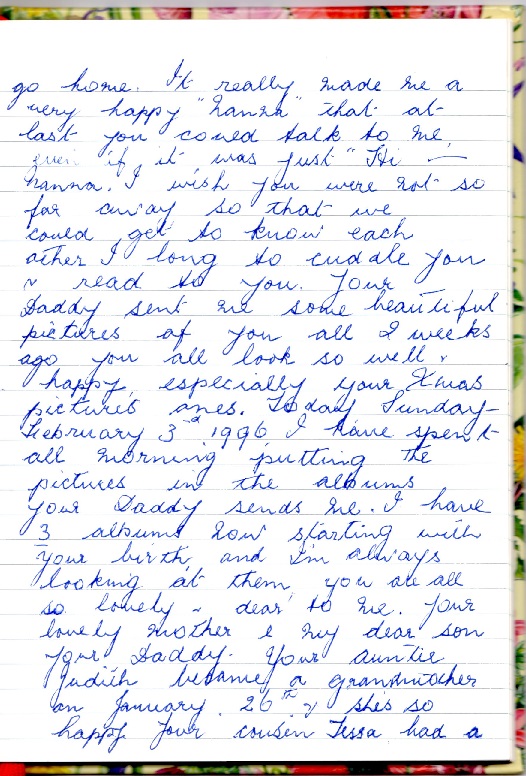 go home. It really made me a
very happy "nanna" that at
last you could talk to me,
even if it was just "Hi —
nanna. I wish you were not so
far away so that we
could get to know each
other I long to cuddle you
& read to you. Your
Daddy sent me some beautiful
pictures of you all 2 weeks
ago you all look so well &
happy, especially your Xmas
pictures ones. Today Sunday-
February 3rd 1996 I have spent
all morning putting the
pictures in the albums
your Daddy sends me. I have
3 albums now starting with
your birth, and I'm always
looking at them, you are all
so lovely & dear to me. Your
lovely mother & my dear son
your Daddy. Your auntie
Judith became a grandmother
on January 26th & she's so
happy your cousin Tessa had a